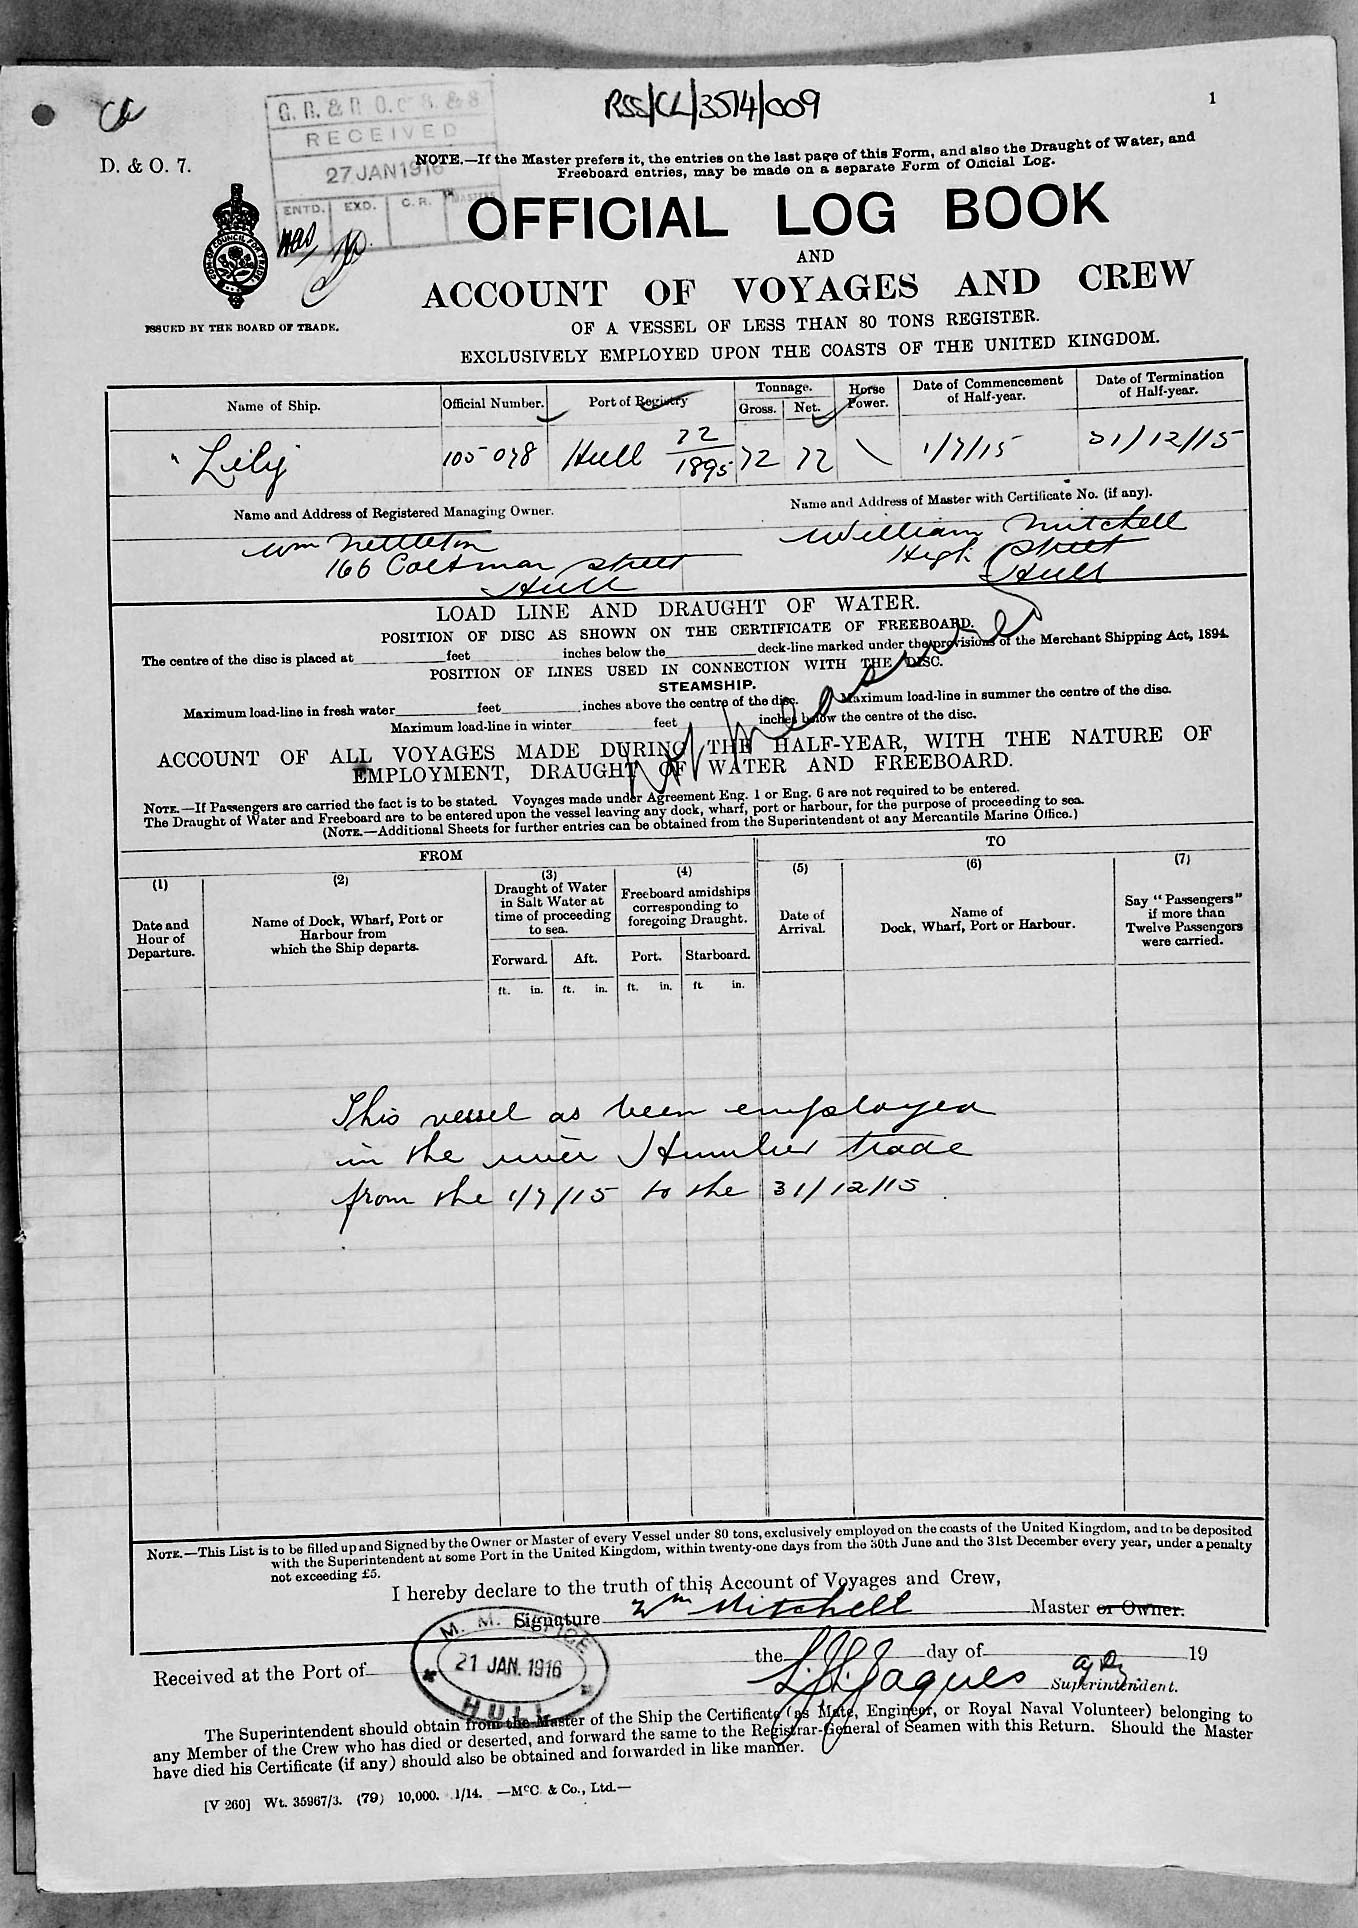 RSS/CL/3514/009
1
G. R. & R. O. of S. & S
RECEIVED
27 JAN 1916
ENTD. EXD. C. R. MASTERS
D. & O. 7.
NOTE.—If the Master prefers it, the entries on the last page of this Form, and also the Draught of Water, and
Freeboard entries, may be made on a separate Form of Official Log.
OFFICIAL LOG BOOK
AND
ACCOUNT OF VOYAGES AND CREW
ISSUED BY THE BOARD OF TRADE.
OF A VESSEL OF LESS THAN 80 TONS REGISTER.
EXCLUSIVELY EMPLOYED UPON THE COASTS OF THE UNITED KINGDOM.
Name of Ship. Official Number. Port of Registry Tonnage. Gross. Net. Horse Power. Date of Commencement of Half-year. Date of Termination of Half-year.
Lily 105078 Hull 22/1895 72 72 \ 1/7/15 31/12/15
Name and Address of Registered Managing Owner. Name and Address of Master with Certificate No. (if any).
Wm Nettleton William Mitchell
166 Coltman Street High Street
Hull Hull
LOAD LINE AND DRAUGHT OF WATER.
POSITION OF DISC AS SHOWN ON THE CERTIFICATE OF FREEBOARD.
The centre of the disc is placed at feet inches below the deck-line marked under the provisions of the Merchant Shipping Act, 1894.
POSITION OF LINES USED IN CONNECTION WITH THE DISC.
STEAMSHIP.
Maximum load-line in fresh water feet inches above the centre of the disc. Maximum load-line in summer the centre of the disc.
Maximum load-line in winter feet inches below the centre of the disc.
Not measured
ACCOUNT OF ALL VOYAGES MADE DURING THE HALF-YEAR, WITH THE NATURE OF
EMPLOYMENT, DRAUGHT OF WATER AND FREEBOARD.
NOTE.—If Passengers are carried the fact is to be stated. Voyages made under Agreement Eng. 1 or Eng. 6 are not required to be entered.
The Draught of Water and Freeboard are to be entered upon the vessel leaving any dock, wharf, port or harbour, for the purpose of proceeding to sea.
(NOTE.—Additional Sheets for further entries can be obtained from the Superintendent of any Mercantile Marine Office.)
FROM TO
(1) (2) (3) (4) (5) (6) (7)
Date and Hour of Departure.
Name of Dock, Wharf, Port or Harbour from which the Ship departs.
Draught of Water in Salt Water at time of proceeding to sea.
Freeboard amidships corresponding to foregoing Draught.
Date of Arrival.
Name of Dock, Wharf, Port or Harbour.
Say "Passengers" if more than Twelve Passengers were carried.
Forward. Aft. Port. Starboard.
ft. in. ft. in. ft. in. ft. in.
This vessel as been employed
in the river Humber trade
from the 1/7/15 to the 31/12/15
NOTE.—This List is to be filled up and Signed by the Owner or Master of every Vessel under 80 tons, exclusively employed on the coasts of the United Kingdom, and to be deposited
with the Superintendent at some Port in the United Kingdom, within twenty-one days from the 30th June and the 31st December every year, under a penalty
not exceeding £5.
I hereby declare to the truth of this Account of Voyages and Crew,
Signature Wm Mitchell Master or Owner.
M. M. OFFICE
21 JAN. 1916
HULL
Received at the Port of the day of 19
L. J. Jaques Superintendent.
The Superintendent should obtain from the Master of the Ship the Certificate (as Mate, Engineer, or Royal Naval Volunteer) belonging to
any Member of the Crew who has died or deserted, and forward the same to the Registrar-General of Seamen with this Return. Should the Master
have died his Certificate (if any) should also be obtained and forwarded in like manner.
[V 260] Wt. 35967/3. (79) 10,000. 1/14. —McC. & Co., Ltd.—